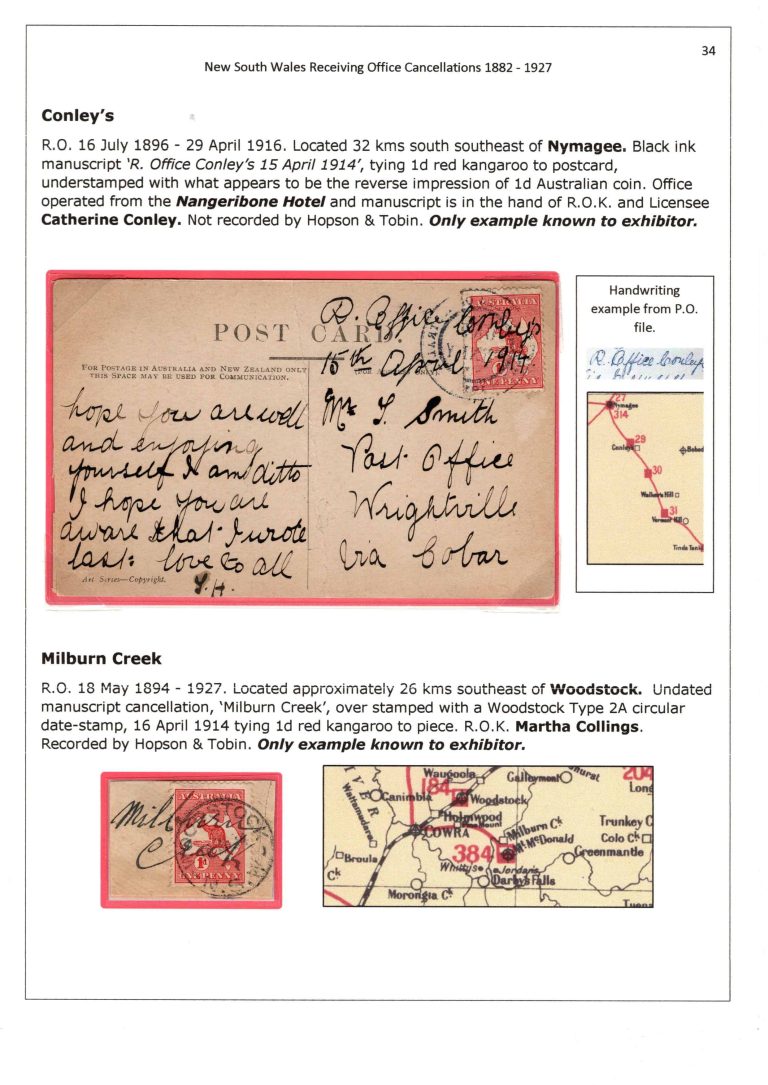 34
New South Wales Receiving Office Cancellations 1882 - 1927
Conley's
R.O. 16 July 1896 - 29 April 1916. Located 32 kms south southeast of Nymagee. Black ink
manuscript 'R. Office Conley's 15 April 1914', tying 1d red kangaroo to postcard,
understamped with what appears to be the reverse impression of 1d Australian coin. Office
operated from the Nangeribone Hotel and manuscript is in the hand of R.O.K. and Licensee
Catherine Conley. Not recorded by Hopson & Tobin. Only example known to exhibitor.
R. Office Conleys
15th April 1914
AUSTRALIA
ONE PENNY
POST CARD.
FOR POSTAGE IN AUSTRALIA AND NEW ZEALAND ONLY
THIS SPACE MAY BE USED FOR COMMUNICATION.
hope you are well
and enjoying
yourself I am ditto
I hope you are
aware that I wrote
last: love to all
Art Series—Copyright.
Smith
Post Office
Wrightville
Via Cobar
Handwriting
example from P.O.
file.
R. Office Conleys
27
Nymagee
314
29
Conleys
30
Walkers Hill
31
Vermont Hill
Milburn Creek
R.O. 18 May 1894 - 1927. Located approximately 26 kms southeast of Woodstock. Undated
manuscript cancellation, 'Milburn Creek', over stamped with a Woodstock Type 2A circular
date-stamp, 16 April 1914 tying 1d red kangaroo to piece. R.O.K. Martha Collings.
Recorded by Hopson & Tobin. Only example known to exhibitor.
Milburn
Creek
AUSTRALIA
1d
ONE PENNY
WOODSTOCK
N.S.W.
RIVER
Waugoola
Galleymont
hurst
204
184
Canimbla
Woodstock
Wattamadara
Holmwood
COWRA
Milburn Ck
Mt. McDonald
Trunkey C
Colo Ck
384
Greenmantle
Broula
Ck
Whittys
Jordans
Darbys Falls
Morongla Ck